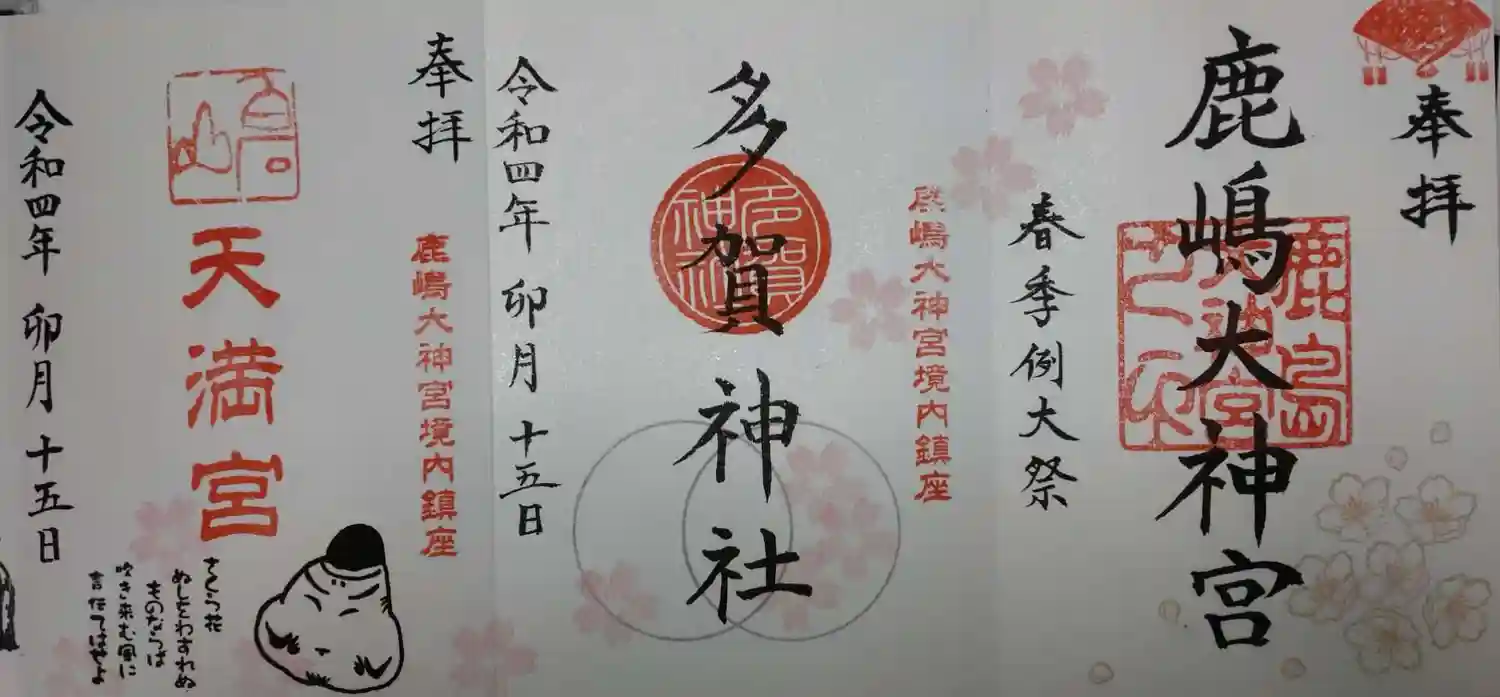 奉拝
鹿嶋大神宮
鹿島
大神宮
春季例大祭
鹿嶋大神宮境内鎮座
多賀神社
多賀
神社
令和四年 卯月 十五日
奉拝
鹿嶋大神宮境内鎮座
天満宮
さくら花
ぬしをわすれぬ
ものならば
吹き来む風に
言伝てはせよ
令和四年 卯月 十五日